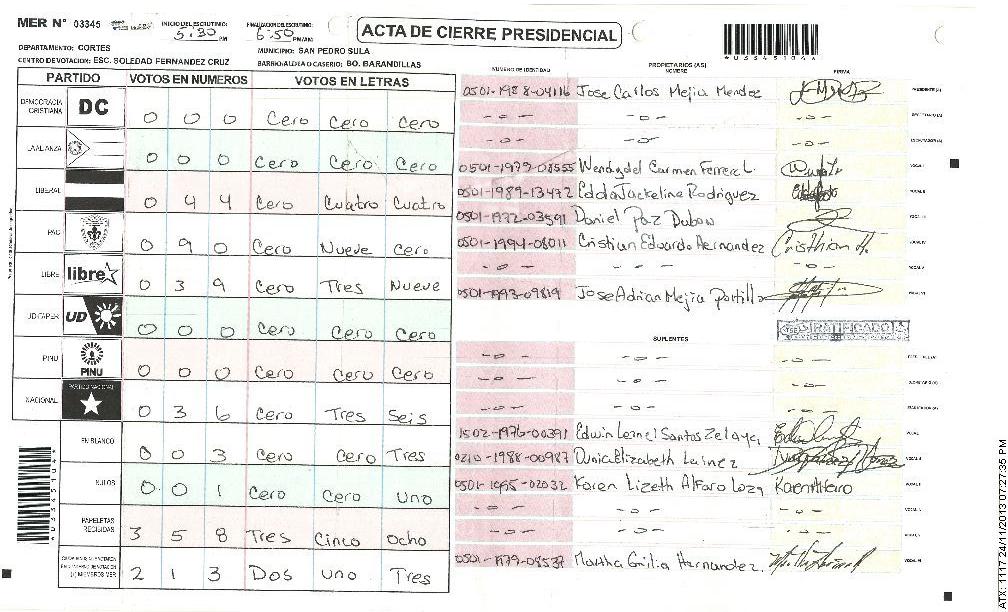 MER N° 03345
INICIO DEL ESCRUTINIO: 5:30 PM
FINALIZACION DEL ESCRUTINIO: 6:50 PM/AM
ACTA DE CIERRE PRESIDENCIAL
DEPARTAMENTO: CORTES
MUNICIPIO: SAN PEDRO SULA
CENTRO DE VOTACION: ESC. SOLEDAD FERNANDEZ CRUZ
BARRIO/ALDEA O CASERIO: BO. BARANDILLAS
PARTIDO VOTOS EN NUMEROS VOTOS EN LETRAS
DEMOCRACIA CRISTIANA DC 0 0 0 Cero Cero Cero
LA ALIANZA 0 0 0 Cero Cero Cero
LIBERAL 0 4 4 Cero Cuatro Cuatro
PAC 0 9 0 Cero Nueve Cero
LIBRE libre 0 3 9 Cero Tres Nueve
UD FAPER UD 0 0 0 Cero Cero Cero
PINU PINU 0 0 0 Cero Cero Cero
NACIONAL PARTIDO NACIONAL 0 3 6 Cero Tres Seis
EN BLANCO 0 0 3 Cero Cero Tres
NULOS 0 0 1 Cero Cero Uno
PAPELETAS RECIBIDAS 3 5 8 Tres Cinco Ocho
2 1 3 Dos Uno Tres
NUMERO DE IDENTIDAD PROPIETARIOS (AS) NOMBRE FIRMA
0501-1988-04116 Jose Carlos Mejia Mendez PRESIDENTE (A)
- 0 - - 0 - - 0 - SECRETARIO (A)
- 0 - - 0 - - 0 - ESCRUTADOR (A)
0501-1979-08555 Wendy del Carmen Ferrera L. VOCAL I
0501-1989-13472 Edda Jackeline Rodriguez VOCAL II
0501-1972-03591 Daniel Paz Dubon VOCAL III
0501-1994-08011 Cristian Eduardo Hernandez Cristhian H. VOCAL IV
- 0 - - 0 - - 0 - VOCAL V
0501-1993-09819 Jose Adrian Mejia Portillo VOCAL VI
TSE RATIFICADO
SUPLENTES
- 0 - - 0 - - 0 -
- 0 - - 0 - - 0 -
- 0 - - 0 - - 0 -
1502-1976-00391 Edwin Leonel Santos Zelaya
0210-1988-00987 Dunia Elizabeth Lainez
0501-1995-02032 Karen Lizeth Alfaro Loza Karen Alfaro
- 0 - - 0 - - 0 -
- 0 - - 0 - - 0 -
0501-1979-08537 Martha Emilia Hernandez.
*U33451044*
ATX: 1117 24/11/2013 07:27:35 PM